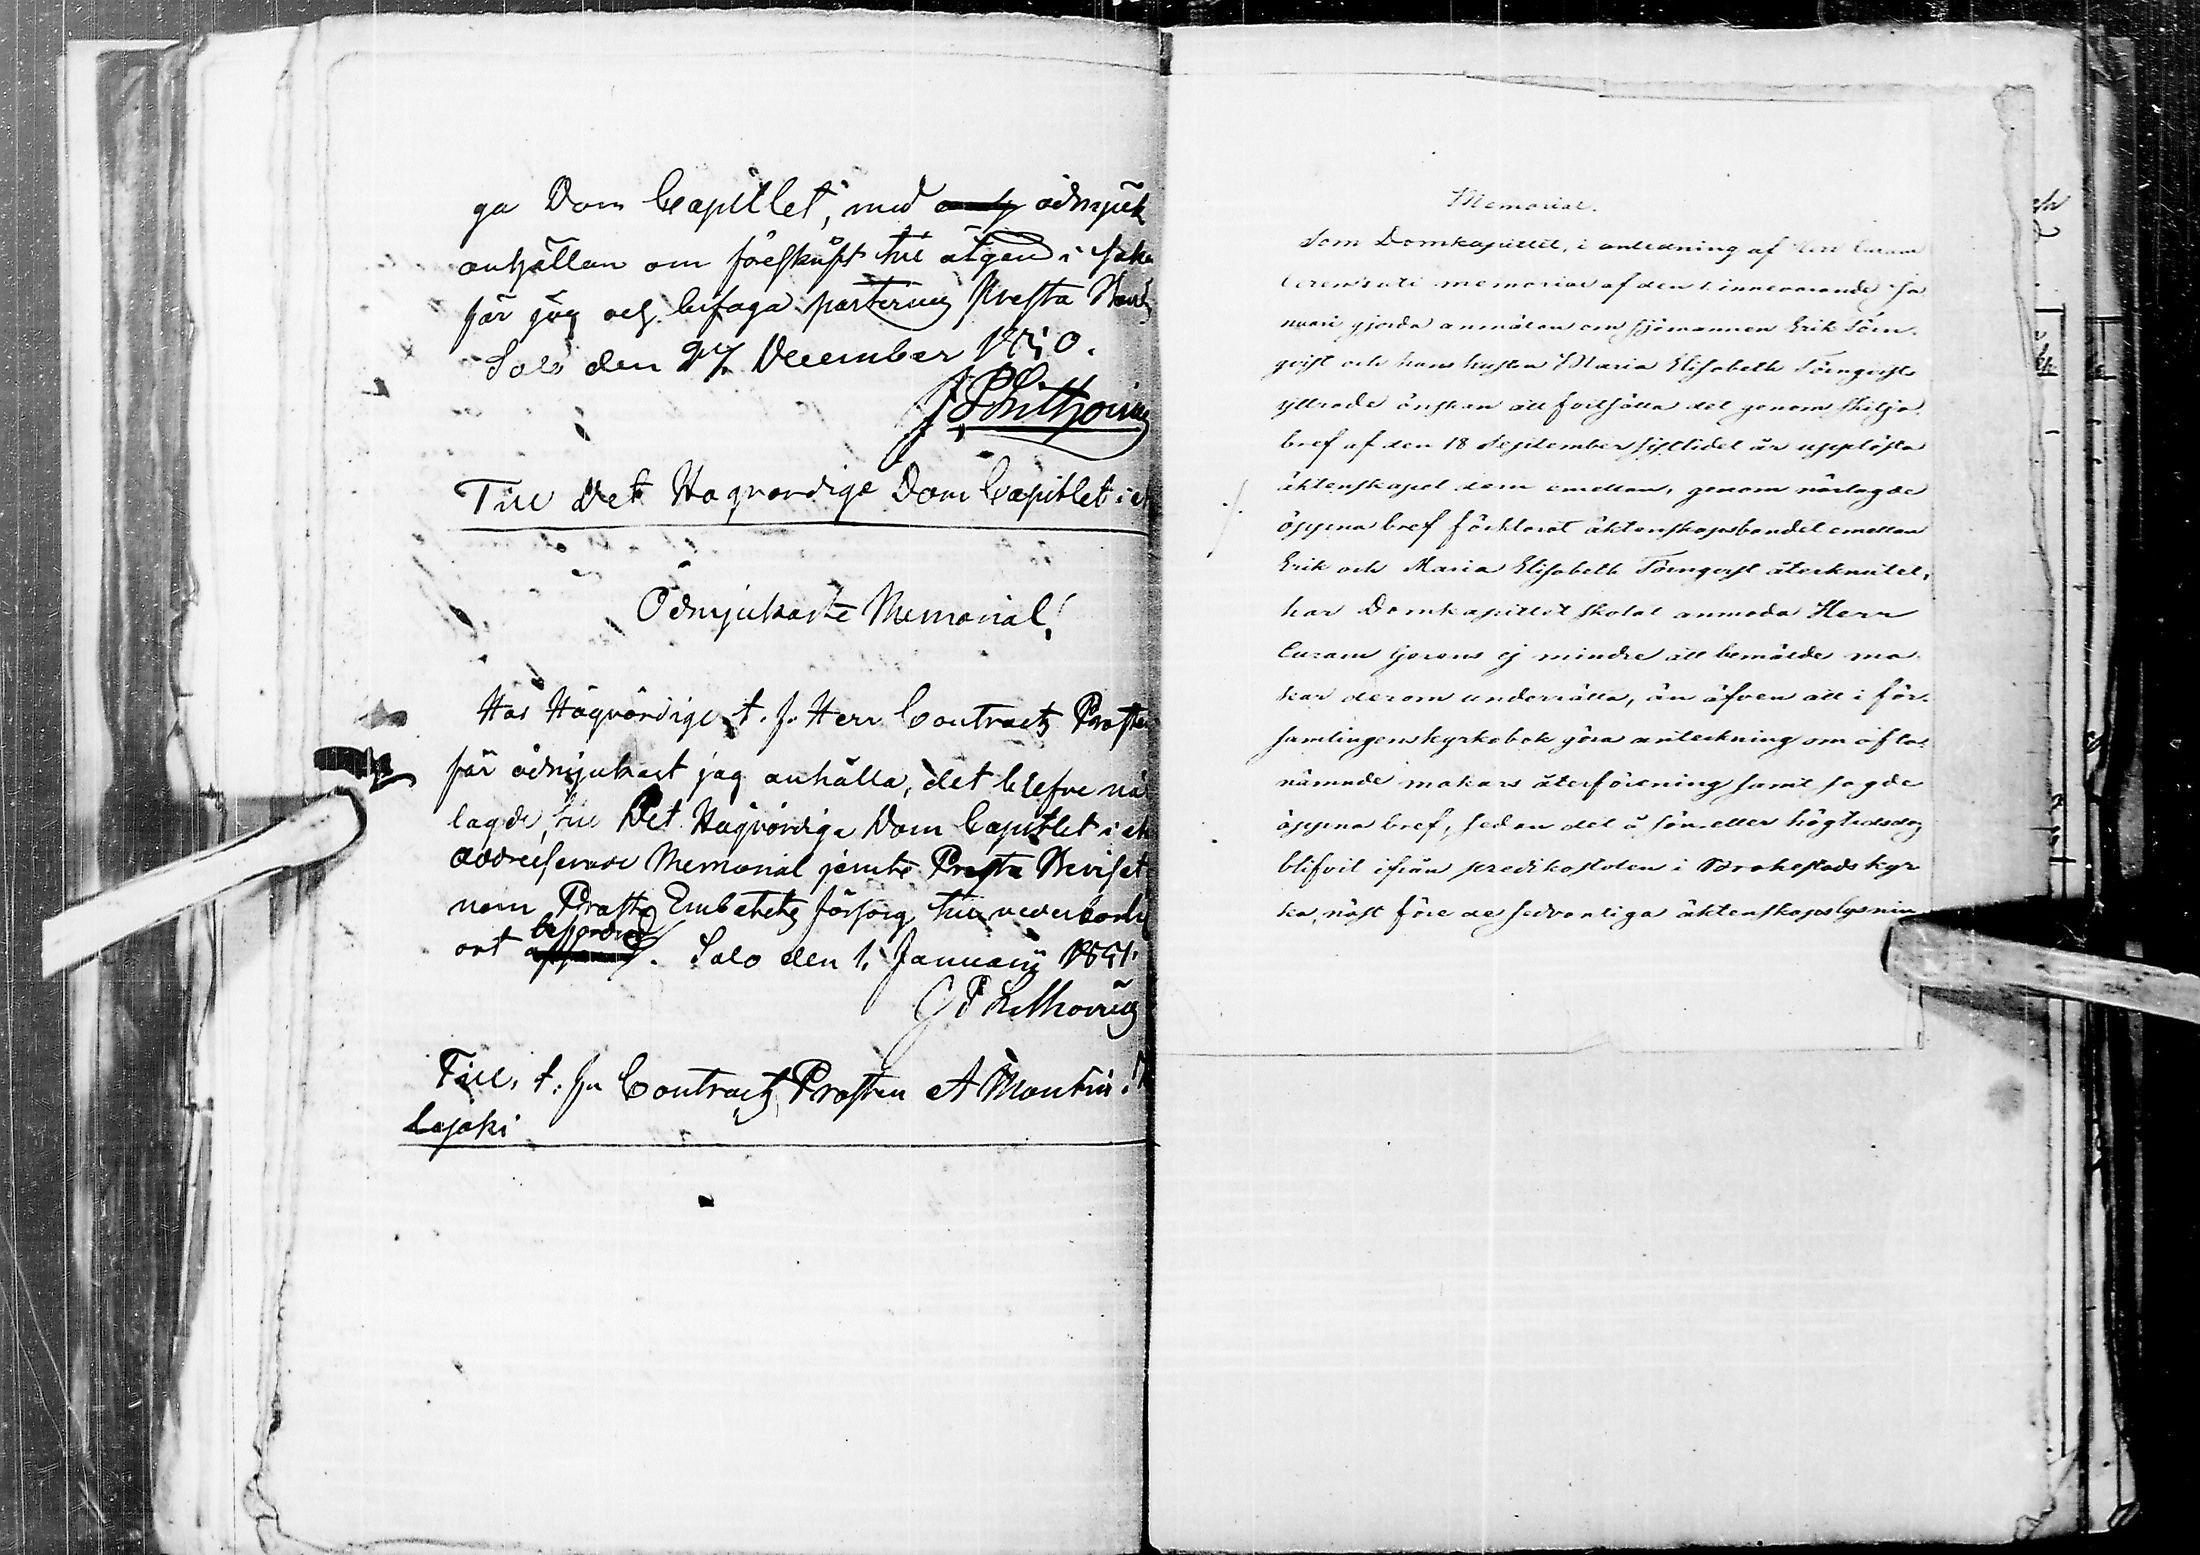 ga Dom Capitlet, med ödmjuk
anhållan om föreskrift till åtgärd i saken
får jag och bifoga parternes Prestabevis
Salo den 27 December 1850.
J P Lithovius
Till Det Högvördige Dom Capitlet i Åbo
Ödmjukaste Memorial!
Hos Högvördige t. f. Herr Contracts Prosten
får ödmjukast jag anhålla, det blefve när
lagde, till Det Högvördiga Dom Capitlet i Åbo
addresserade Memorial jemte Presta Beviset
nom Prosts Embetets försorg till vederbörlig
ort befordrad. Salo den 1. Januarii 1851.
J P Lithovius
Till, t. f. Contracts Prosten A Montin.
lajoki
Memorial.
Som Domkapitlet, i anledning af Herr Curam
Gerentis uti memorial af den 1. innevarande Ja
nuari gjorda anmälan om sjömannen Erik Törn
qvist och hans hustru Maria Elisabeth Törnqvists
yttrade önskan att fortsätta det genom skiljo
bref af den 18 September sistlidet år upplösta
äktenskapet dem emellan, genom närlagde
öppna bref förklarat äktenskapsbandet emellan
Erik och Maria Elisabeth Törnqvist återknutet,
har Domkapitlet skolat anmoda Herr
Curam Gerens ej mindre att bemälde ma
kar derom underrätta, än äfven att i för
samlingens kyrkobok göra anteckning om ofta
nämnde makars återförening samt sagde
öppna bref, sedan det å sön- eller högtidsdag
blifvit ifrån predikostolen i Brahestads kyr
ka, näst före de sedvanliga äktenskapslysnin